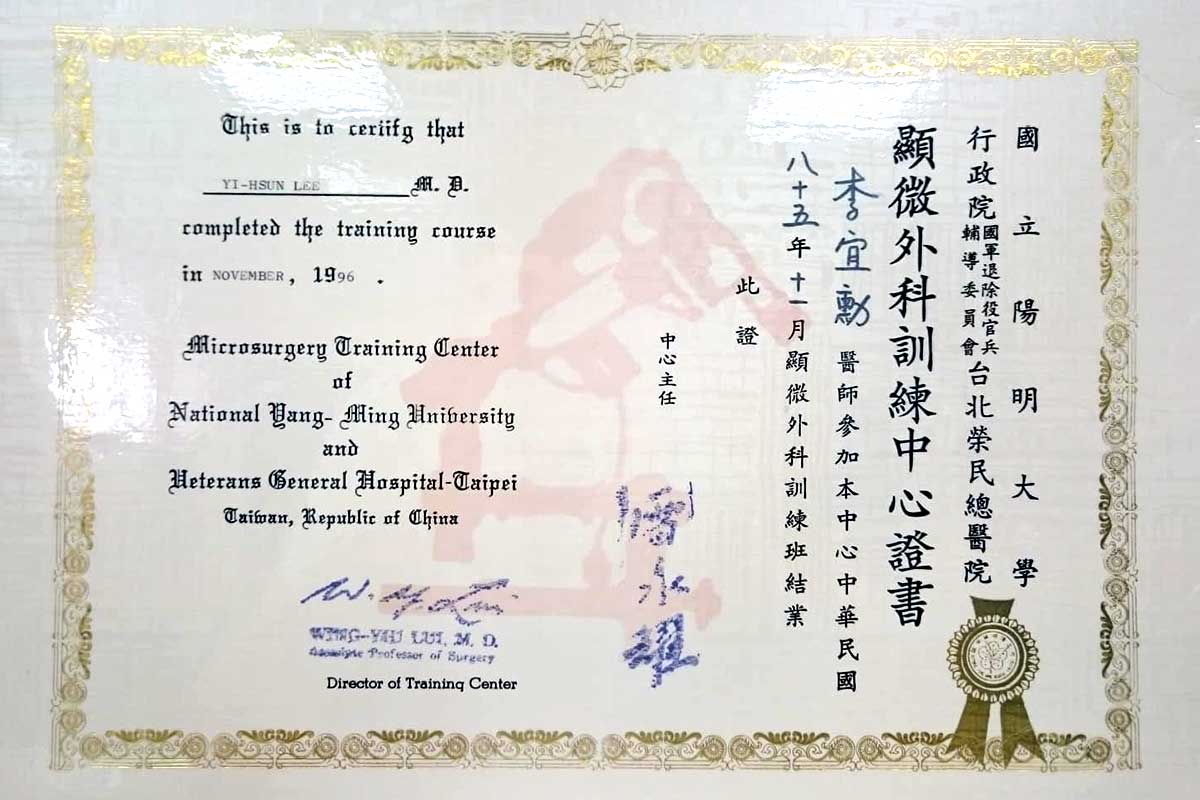 This is to certify that
YI-HSUN LEE M. D.
completed the training course
in NOVEMBER, 1996 .
Microsurgery Training Center
of
National Yang- Ming University
and
Veterans General Hospital-Taipei
Taiwan, Republic of China
W. Y. Lui
WING-YIU LUI, M. D.
Associate Professor of Surgery
Director of Training Center
國立陽明大學
行政院國軍退除役官兵輔導委員會台北榮民總醫院
顯微外科訓練中心證書
李宜勳 醫師參加本中心中華民國
八十五年十一月顯微外科訓練班結業
此證
中心主任